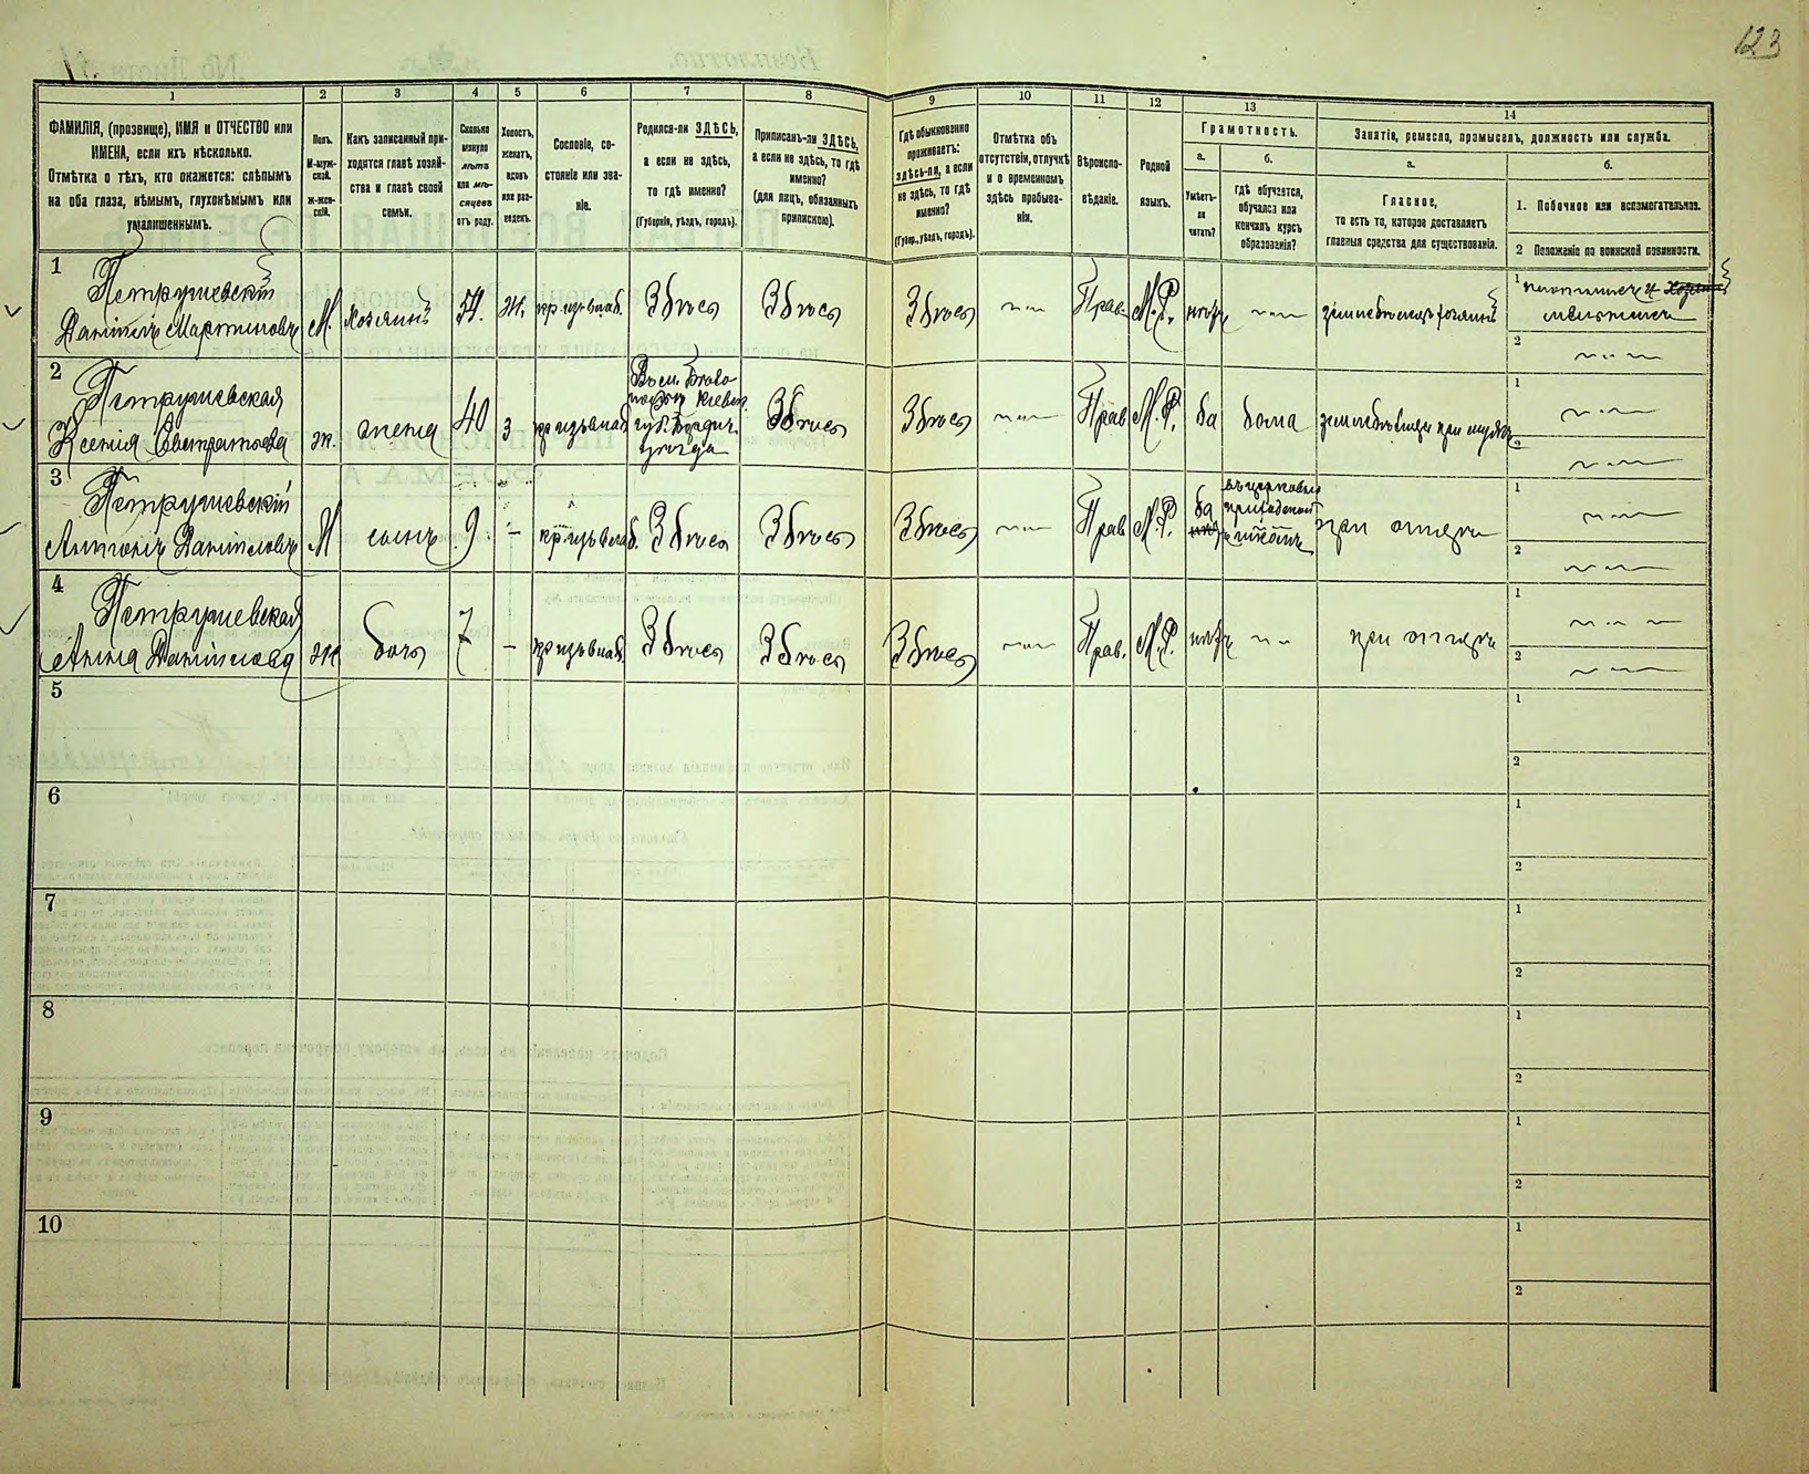 123
1 2 3 4 5 6 7 8 9 10 11 12 13 14
ФАМИЛІЯ, (прозвище), ИМЯ и ОТЧЕСТВО или
ИМЕНА, если ихъ нѣсколько.
Отмѣтка о тѣхъ, кто окажется: слѣпымъ
на оба глаза, нѣмымъ, глухонѣмымъ или
умалишеннымъ.
Полъ.
М-муж-
ской.
ж-жен-
скій.
Какъ записанный при-
ходится главѣ хозяй-
ства и главѣ своей
семьи.
Сколько
минуло
лѣтъ
или мѣ-
сяцевъ
отъ роду.
Холостъ,
женатъ,
вдовъ
или раз-
веденъ.
Сословіе, со-
стояніе или зва-
ніе.
Родился-ли ЗДѢСЬ,
а если не здѣсь,
то гдѣ именно?
(Губернія, уѣздъ, городъ).
Приписанъ-ли ЗДѢСЬ,
а если не здѣсь, то гдѣ
именно?
(для лицъ, обязанныхъ
припискою).
Гдѣ обыкновенно
проживаетъ:
здѣсь-ли, а если
не здѣсь, то гдѣ
именно?
(Губер., уѣздъ, городъ).
Отмѣтка объ
отсутствіи, отлучкѣ
и о временномъ
здѣсь пребыва-
ніи.
Вѣроиспо-
вѣданіе.
Родной
языкъ.
Грамотность.
а.
Умѣетъ-
ли
читать?
б.
гдѣ обучается,
обучался или
кончилъ курсъ
образованія?
Занятія, ремесло, промыселъ, должность или служба.
а.
Главное,
то есть то, которое доставляетъ
главныя средства для существованія.
б.
1. Побочное или вспомогательное.
2 Положеніе по воинской повинности.
1
Петрушевскій
Даніилъ Мартиновъ
М. Хозяинъ 54. Ж. кр. изъ влад. Здѣсь Здѣсь Здѣсь Прав. М.Р. нѣтъ земледѣлецъ хозяинъ
1 плотникъ и
2
2
Петрушевская
Ксенія Евстратьева
ж. жена 40 З кр изъ влад
губ. Бердич.
уѣзда
Здѣсь Здѣсь Прав М.Р. да дома земледѣлица при мужѣ
1
2
3
Петрушевскій
Антонъ Даниловъ
М сынъ 9. - кр изъ влад. Здѣсь Здѣсь Здѣсь Прав М.Р. да
въ церковно
приходской
при отцѣ
1
2
4
Петрушевская
Анна Даніилова
ж дочь 7 - кр изъ влад. Здѣсь Здѣсь Здѣсь Прав. М.Р. нѣтъ при отцѣ
1
2
5
1
2
6
1
2
7
1
2
8
1
2
9
1
2
10
1
2